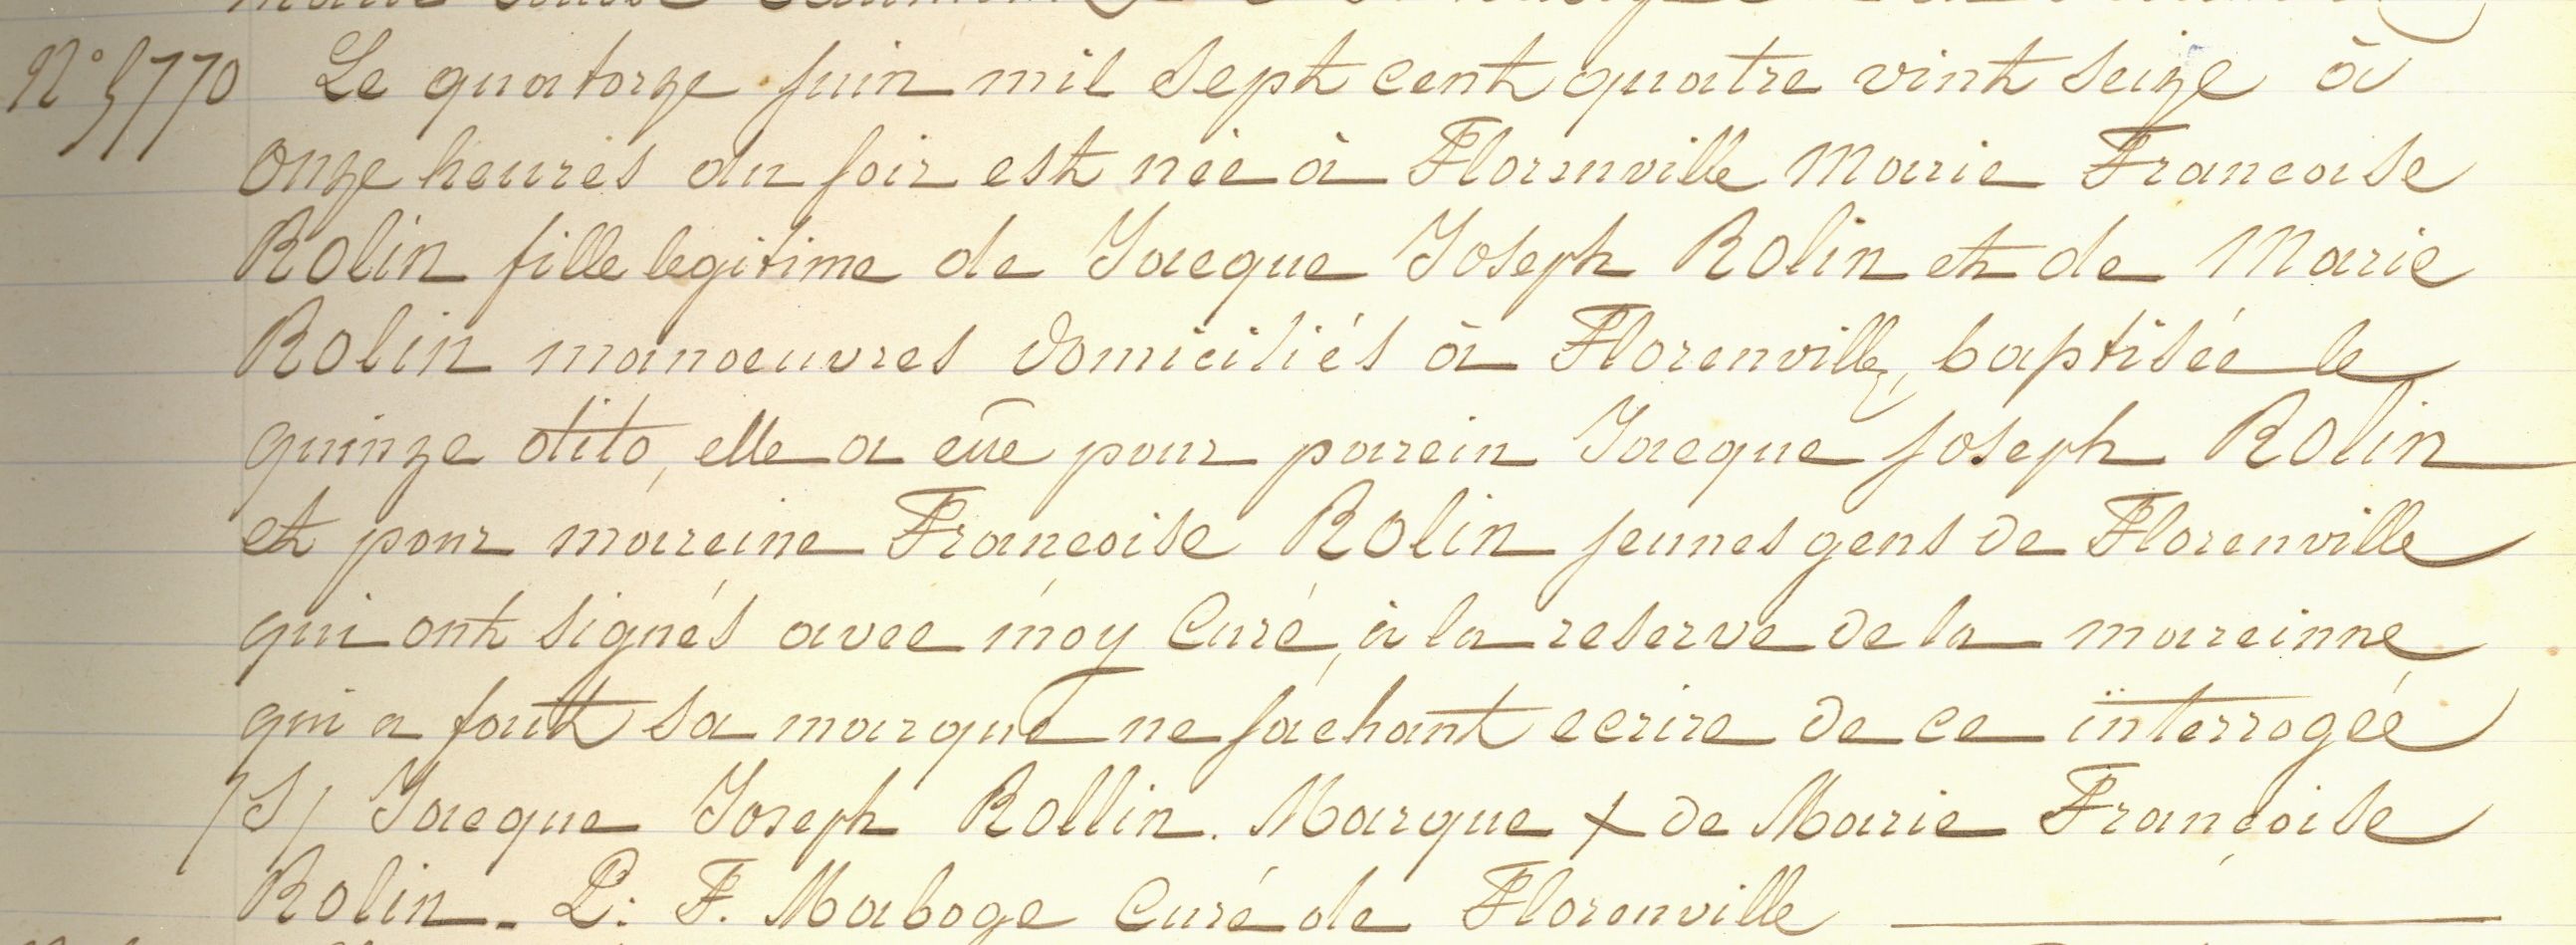 N° 5770 Le quatorze juin mil sept cent quatre vint seize à
onze heures du soir est née à Florenville Marie Francoise
Rolin fille legitime de Jacque Joseph Rolin et de Marie
Rolin manoeuvres domiciliés à Florenville, baptisée le
quinze dito, elle a eûe pour parein Jacque Joseph Rolin
et pour mareine Francoise Rolin jeunes gens de Florenville
qui ont signés avec moy Curé, à la reserve de la mareinne
qui a fait sa marque ne sachant ecrire de ce interrogée
/S/ Jacque Joseph Rollin. Marque + de Marie Françoise
Rolin. P. F. Maboge Curé de Florenville